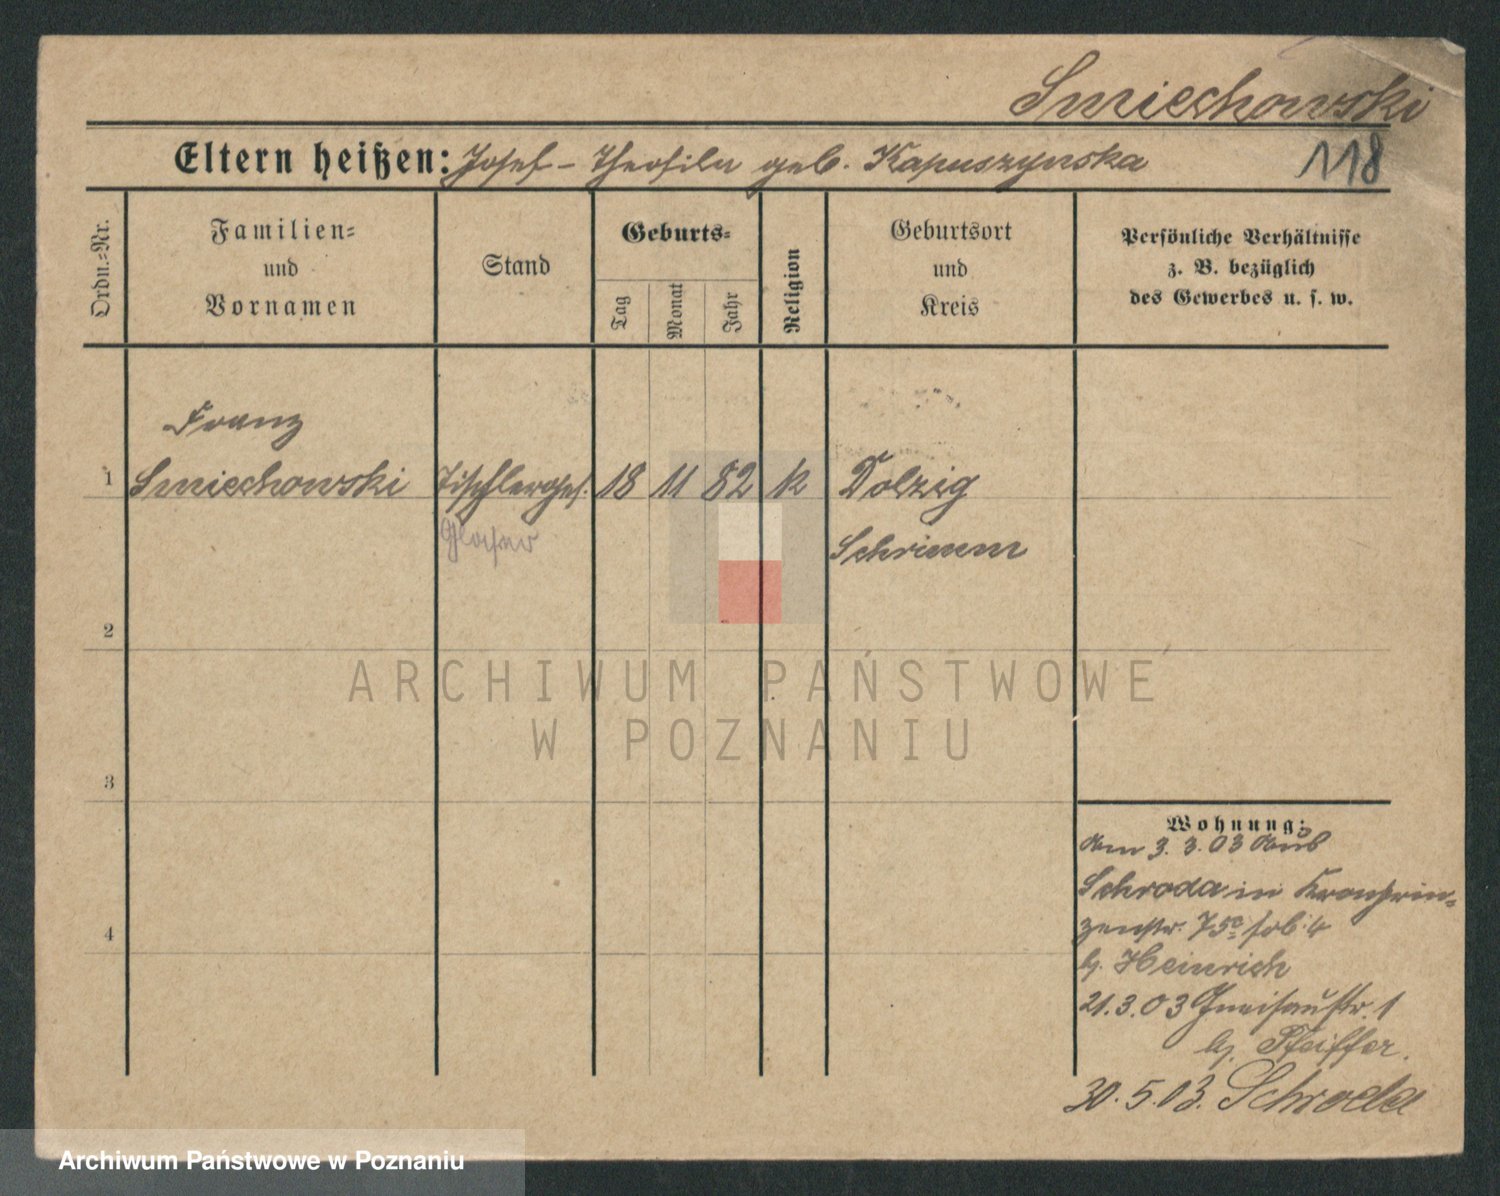 Smiechowski
Eltern heißen: Josef – Theofila geb. Kapuszynska
118
Ordn.-Nr.
Familien-
und
Vornamen
Stand
Geburts-
Tag
Monat
Jahr
Religion
Geburtsort
und
Kreis
Persönliche Verhältnisse
z. B. bezüglich
des Gewerbes u. s. w.
Franz
1 Smiechowski Tischlerges. 18 11 82 k Dolzig
Glaser Schrimm
2
ARCHIWUM PAŃSTWOWE
W POZNANIU
3
Wohnung:
am 3. 3. 03 aus
Schroda in Kronprin-
zenstr. 75
b. Heinrich
21. 3. 03 Gneisenaustr. 1
b. Pfeiffer.
30. 5. 03. Schroda
4
Archiwum Państwowe w Poznaniu